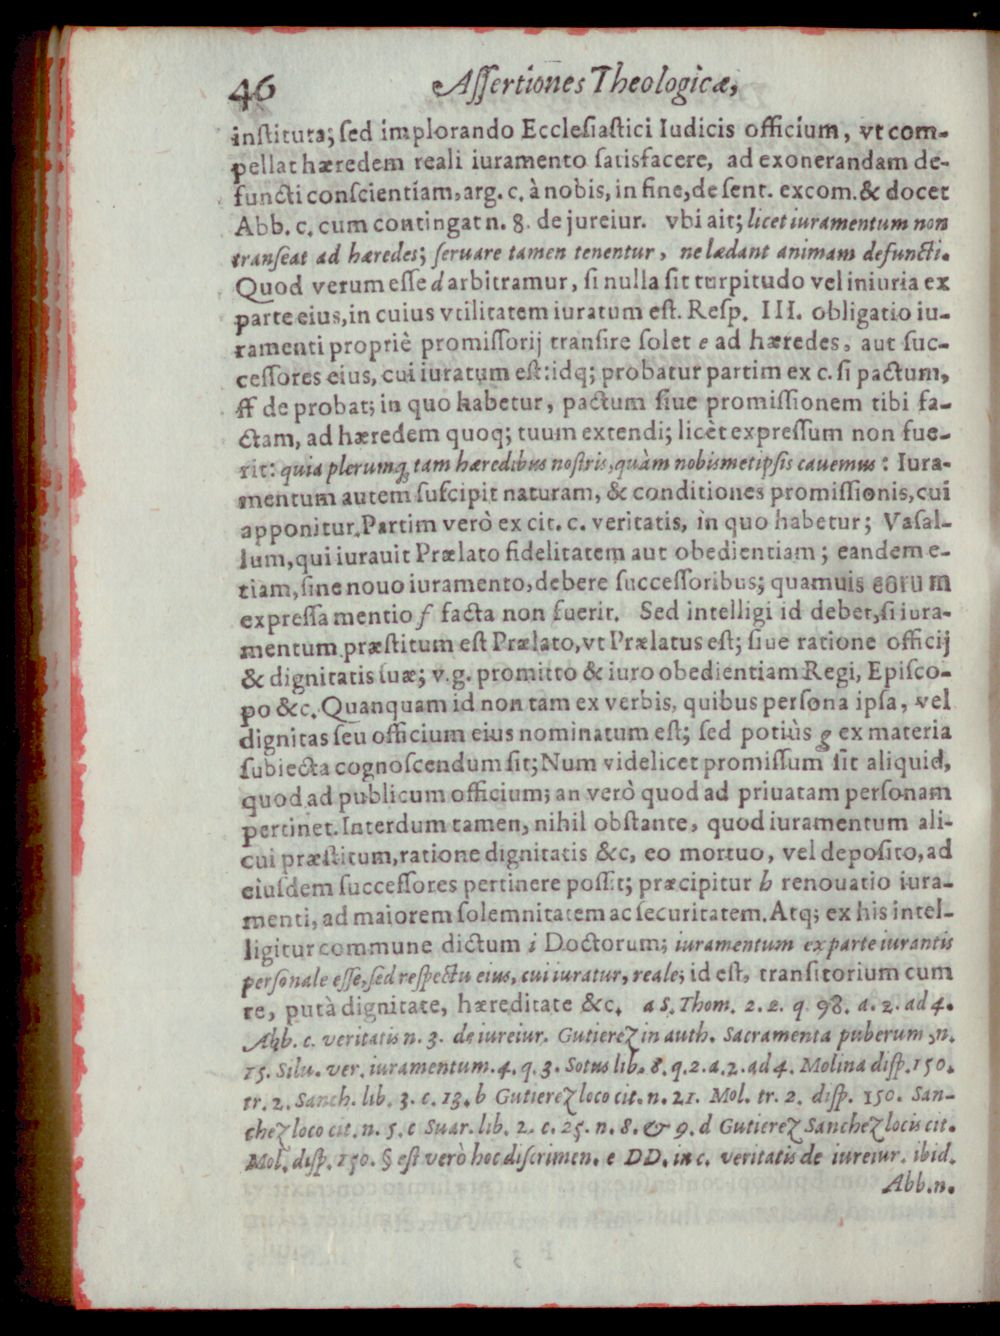 46 Aſſertiones Theologicæ,
inſtituta; ſed implorando Eccleſiaſtici Iudicis officium, vt com-
pellat hæredem reali iuramento ſatisfacere, ad exonerandam de-
functi conſcientiam, arg. c. à nobis, in fine, de ſent. excom. & docet
Abb. c. cum contingat n. 8. de jureiur. vbi ait; licet iuramentum non
tranſeat ad hæredes; ſeruare tamen tenentur, ne lædant animam defuncti.
Quod verum eſſe d arbitramur, ſi nulla ſit turpitudo vel iniuria ex
parte eius, in cuius vtilitatem iuratum eſt. Reſp. III. obligatio iu-
ramenti propriè promiſſorij tranſire ſolet e ad hæredes, aut ſuc-
ceſſores eius, cui iuratum eſt: idq; probatur partim ex c. ſi pactum,
ff de probat; in quo habetur, pactum ſiue promiſſionem tibi fa-
ctam, ad hæredem quoq; tuum extendi; licèt expreſſum non fue-
rit: quia plerumq; tam hæredibus noſtris, quàm nobismetipſis cauemus: Iura-
mentum autem ſuſcipit naturam, & conditiones promiſſionis, cui
apponitur. Partim verò ex cit. c. veritatis, in quo habetur; Vaſal-
lum, qui iurauit Prælato fidelitatem aut obedientiam; eandem e-
tiam, ſine nouo iuramento, debere ſucceſſoribus; quamuis eorum
expreſſa mentio f facta non fuerit. Sed intelligi id debet, ſi iura-
mentum præſtitum eſt Prælato, vt Prælatus eſt; ſiue ratione officij
& dignitatis ſuæ; v.g. promitto & iuro obedientiam Regi, Epiſco-
po &c. Quanquam id non tam ex verbis, quibus perſona ipſa, vel
dignitas ſeu officium eius nominatum eſt; ſed potiùs g ex materia
ſubiecta cognoſcendum ſit; Num videlicet promiſſum ſit aliquid,
quod ad publicum officium; an verò quod ad priuatam perſonam
pertinet. Interdum tamen, nihil obſtante, quod iuramentum ali-
cui præſtitum, ratione dignitatis &c, eo mortuo, vel depoſito, ad
eiuſdem ſucceſſores pertinere poſſit; præcipitur h renouatio iura-
menti, ad maiorem ſolemnitatem ac ſecuritatem. Atq; ex his intel-
ligitur commune dictum i Doctorum; iuramentum ex parte iurantis
perſonale eſſe, ſed reſpectu eius, cui iuratur, reale; id eſt, tranſitorium cum
re, putà dignitate, hæreditate &c. a S. Thom. 2. 2. q. 98. a. 2. ad 4.
Abb. c. veritatis n. 3. de iureiur. Gutierez in auth. Sacramenta puberum, n.
15. Silu. ver. iuramentum. 4. q. 3. Sotus lib. 8. q. 2. a. 2. ad 4. Molina diſp. 150.
tr. 2. Sanch. lib. 3. c. 13. b Gutierez loco cit. n. 21. Mol. tr. 2. diſp. 150. San-
chez loco cit. n. 5. c Suar. lib. 2. c. 25. n. 8. & 9. d Gutierez Sanchez locis cit.
Mol. diſp. 150. § eſt verò hoc diſcrimen. e DD. in c. veritatis de iureiur. ibid.
Abb. n.